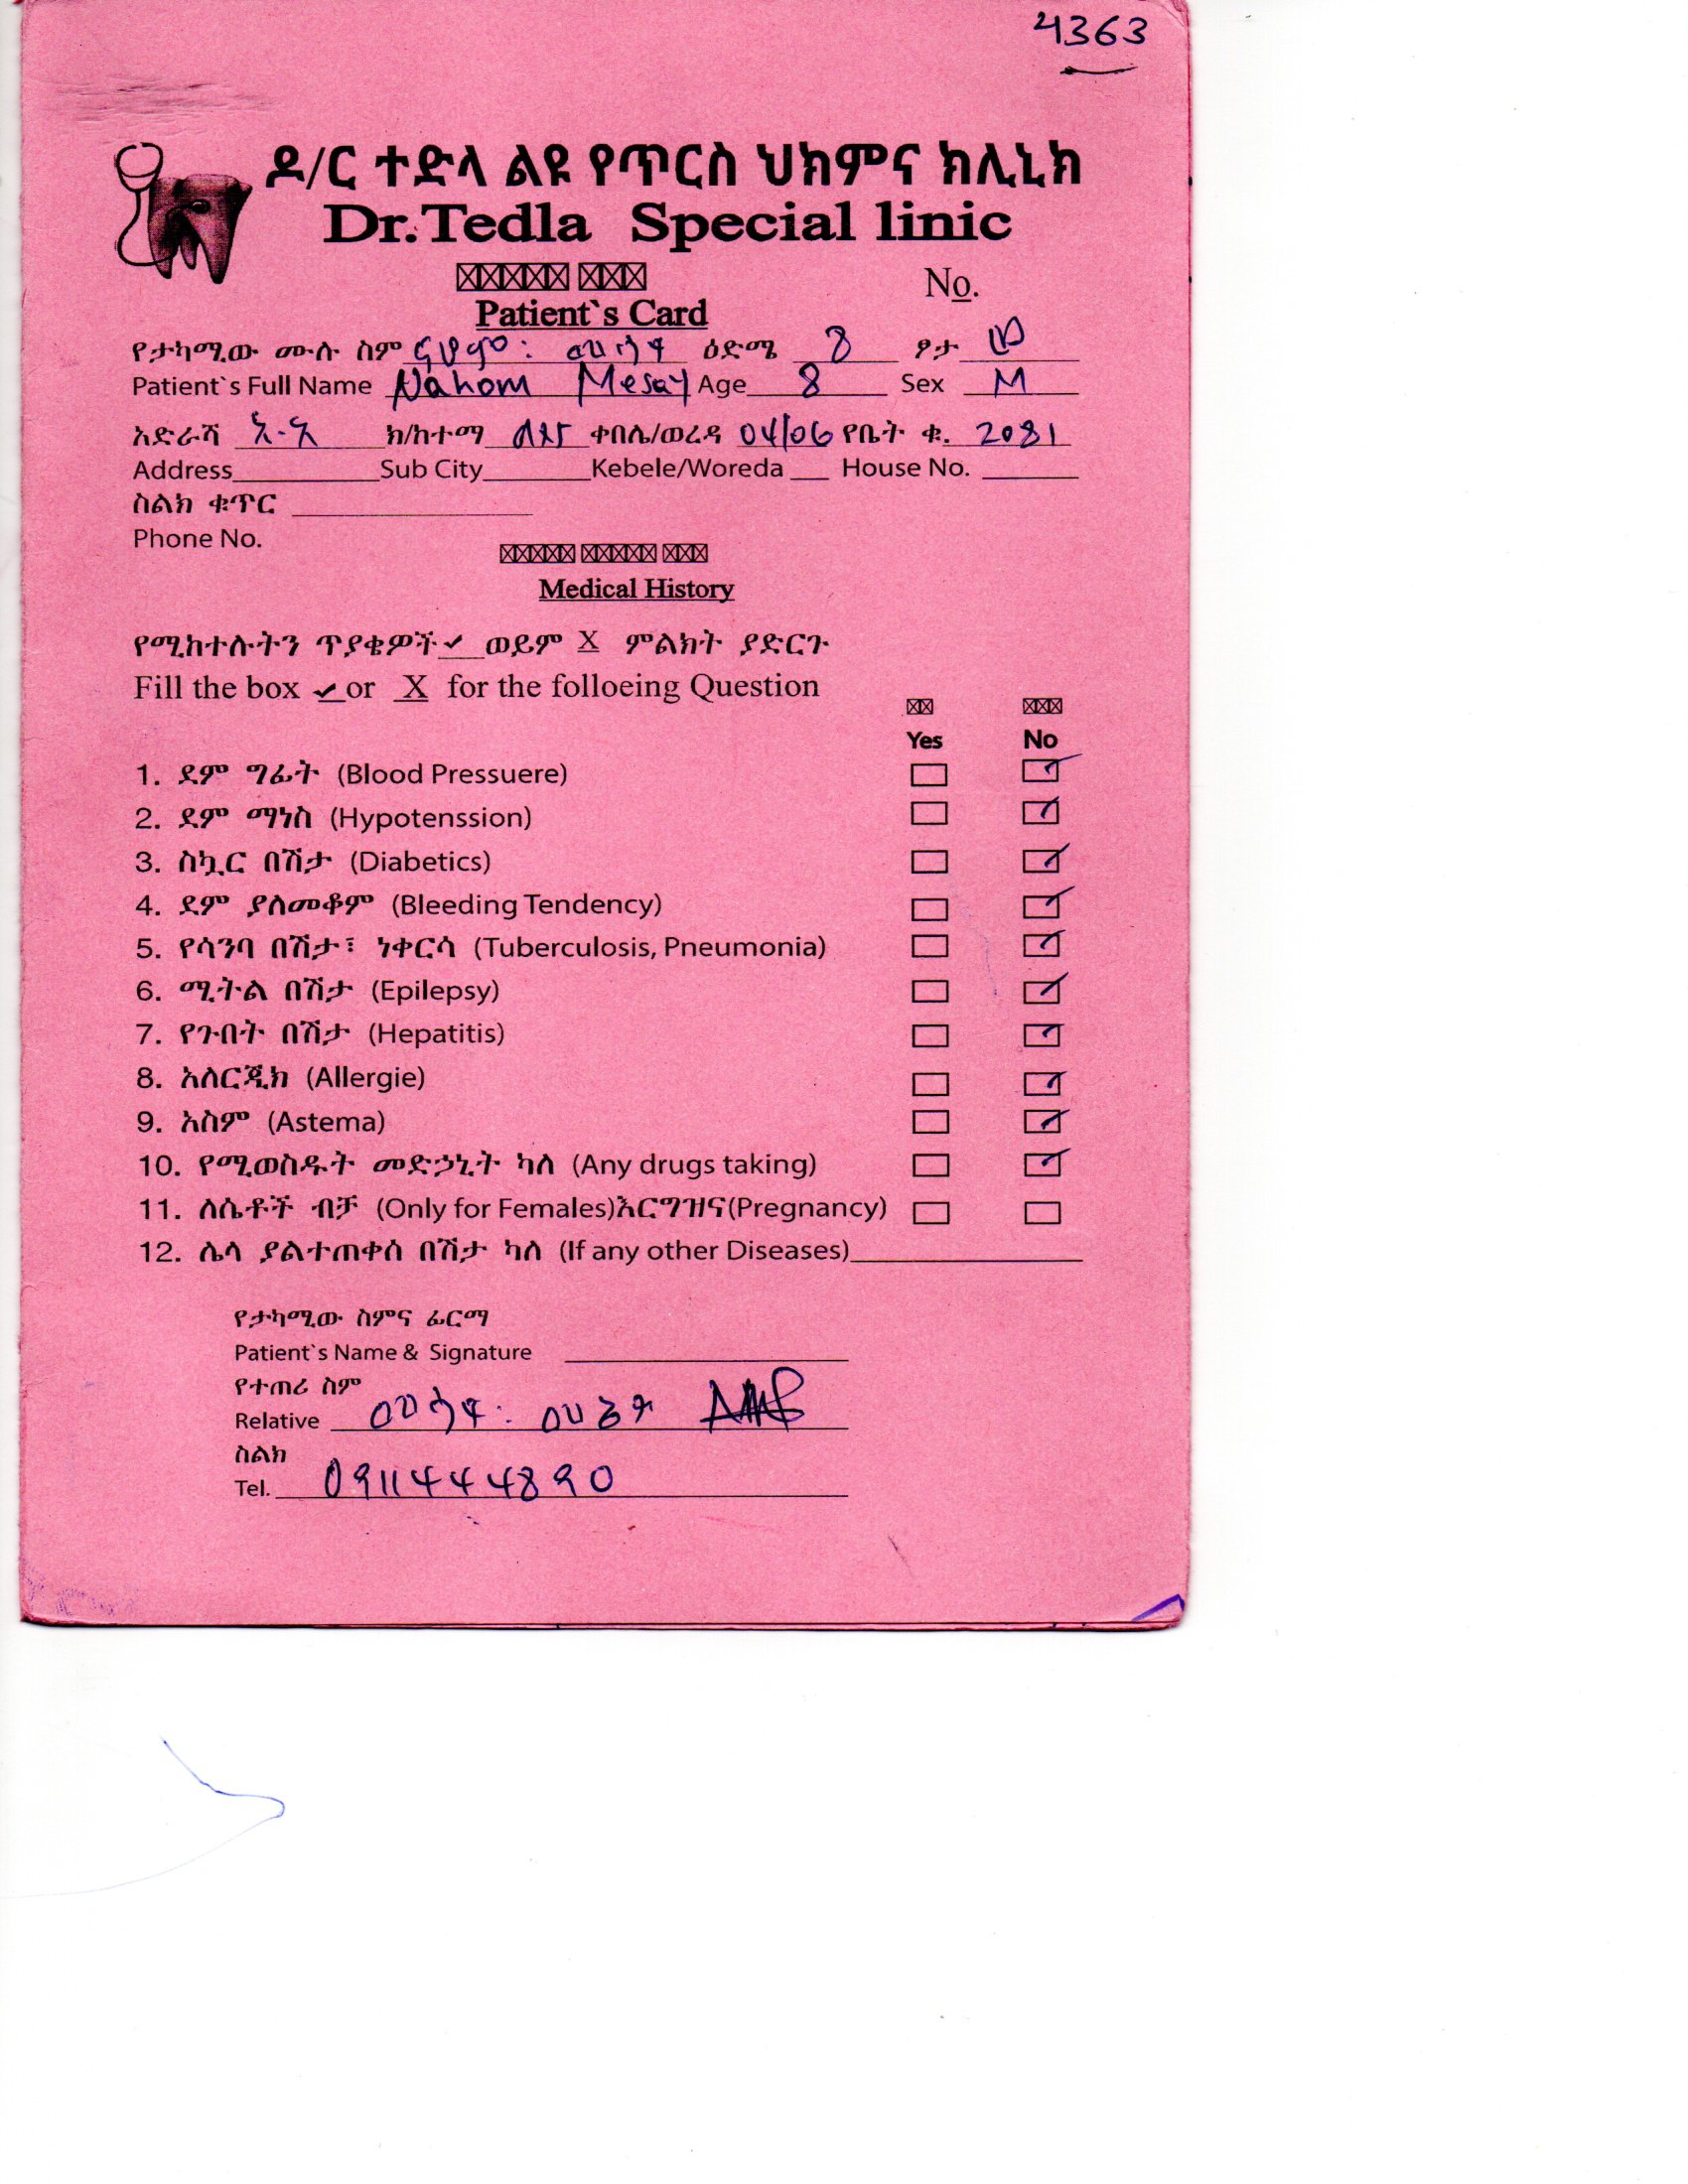 4363
ዶ/ር ተድላ ልዩ የጥርስ ህክምና ክሊኒክ
Dr.Tedla Special linic
No.
Patient`s Card
የታካሚው ሙሉ ስም ናሆም: መሳዋ ዕድሜ 8 ፆታ ወ
Patient`s Full Name Nahom Mesay Age 8 Sex M
አድራሻ አ.አ ክ/ከተማ ቀበሌ/ወረዳ 04/06 የቤት ቁ. 2081
Address Sub City Kebele/Woreda House No.
ስልክ ቁጥር
Phone No.
Medical History
የሚከተሉትን ጥያቄዎች ✓ ወይም X ምልክት ያድርጉ
Fill the box ✓ or X for the folloeing Question
Yes No
1. ደም ግፊት (Blood Pressuere)
2. ደም ማነስ (Hypotenssion)
3. ስኳር በሽታ (Diabetics)
4. ደም ያለመቆም (Bleeding Tendency)
5. የሳንባ በሽታ፣ ነቀርሳ (Tuberculosis, Pneumonia)
6. ሚትል በሽታ (Epilepsy)
7. የጉበት በሽታ (Hepatitis)
8. አለርጂክ (Allergie)
9. አስም (Astema)
10. የሚወስዱት መድኃኒት ካለ (Any drugs taking)
11. ለሴቶች ብቻ (Only for Females)እርግዝና(Pregnancy)
12. ሌላ ያልተጠቀሰ በሽታ ካለ (If any other Diseases)
የታካሚው ስምና ፊርማ
Patient`s Name & Signature
የተጠሪ ስም
Relative
ስልክ
Tel. 0911444890